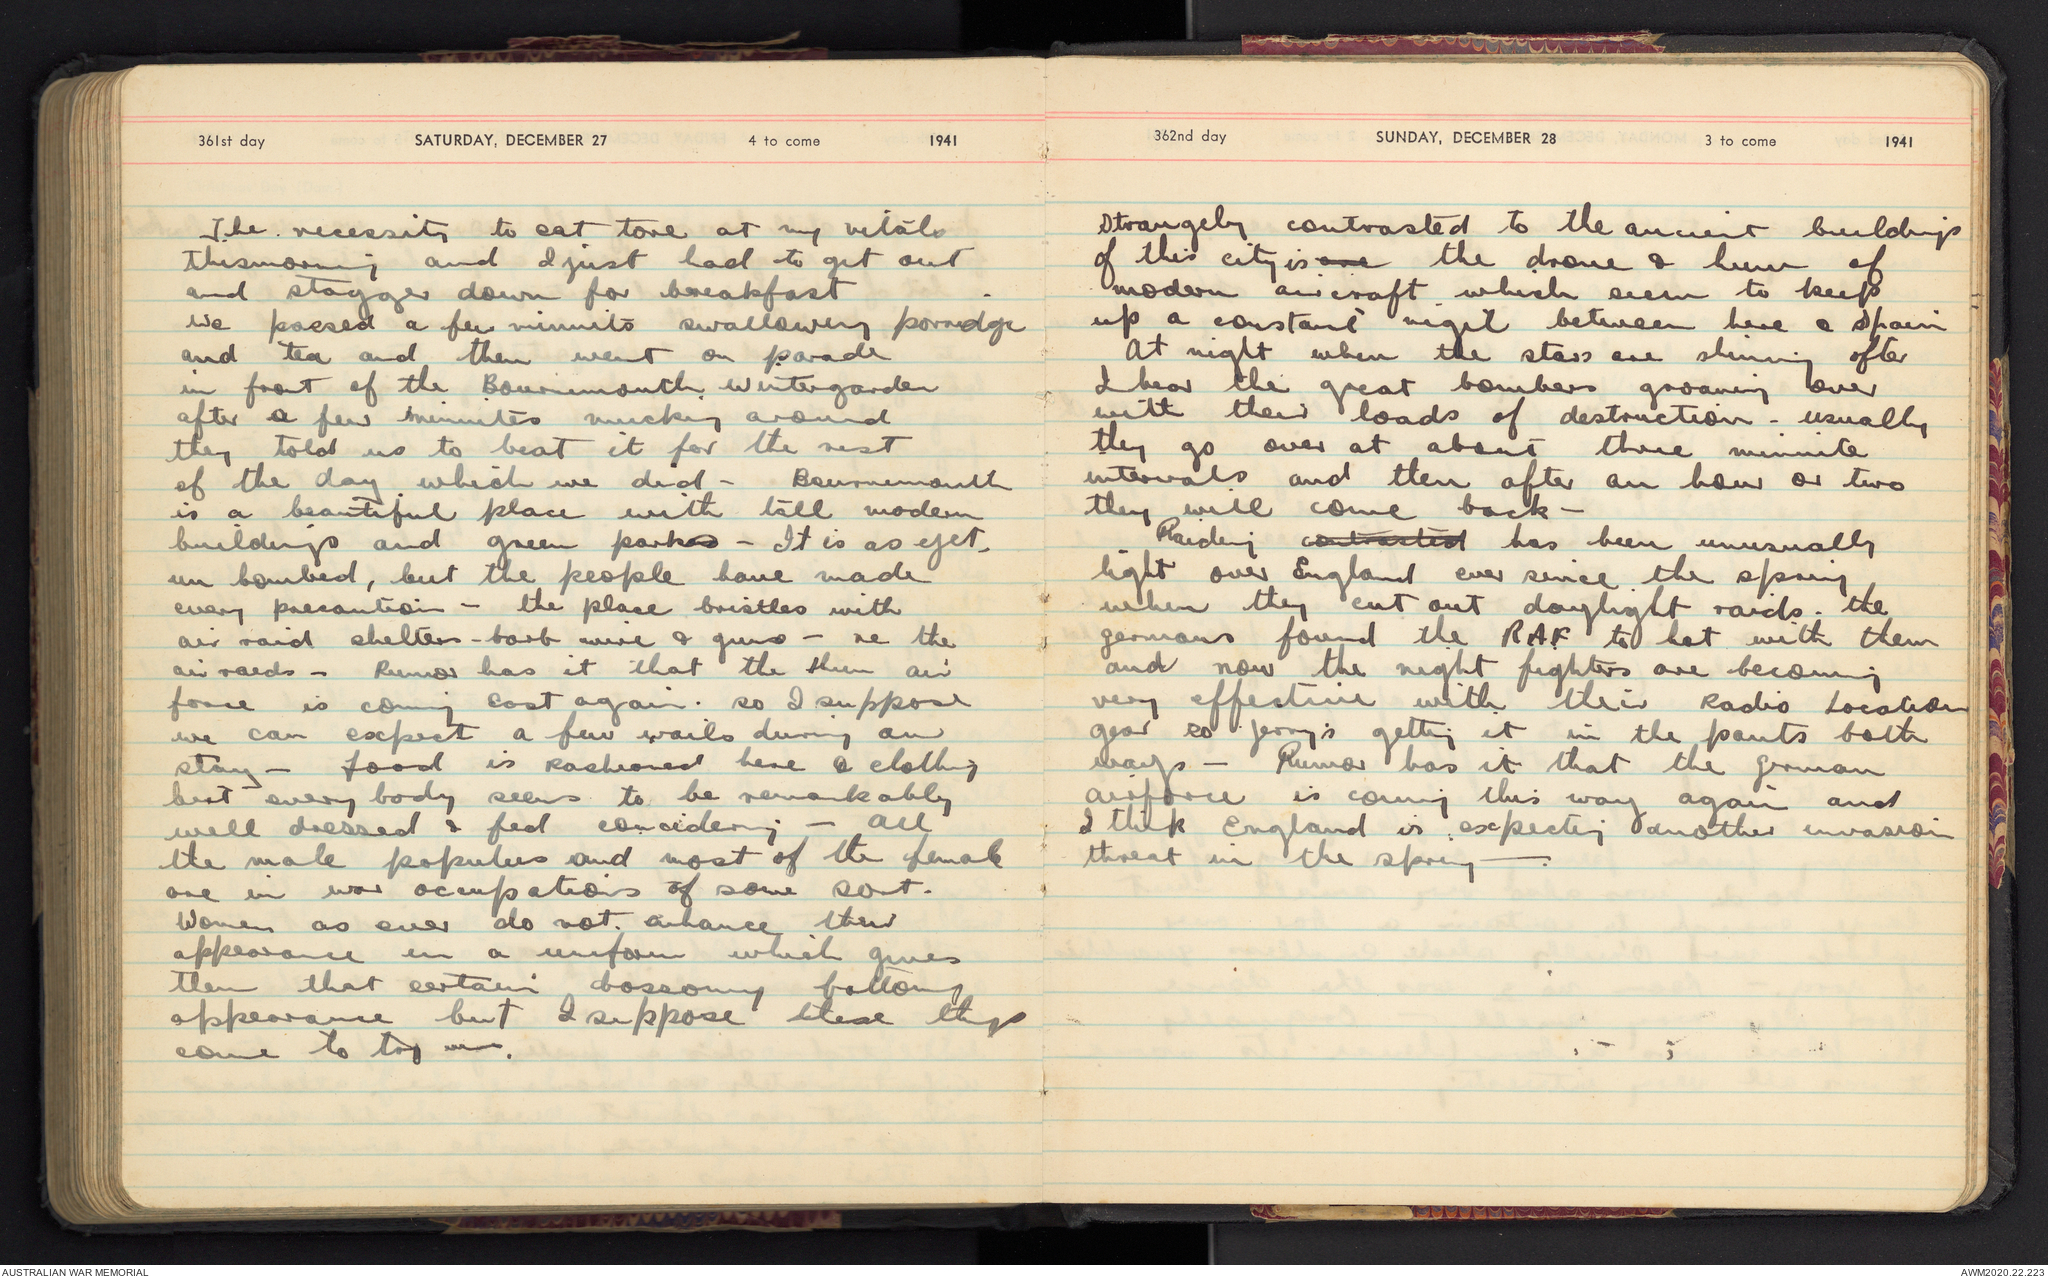 361st day SATURDAY, DECEMBER 27 4 to come 1941
The necessity to eat tore at my vitals
thismorning and I just had to get out
and stagger down for breakfast
We passed a few minnits swallowing porredge
and tea and then went on parade
in front of the Bournmouth Wintergarden
after a few minnites mucking around
they told us to beat it for the rest
of the day which we did - Bournemouth
is a beautiful place with tall modern
buildings and green parks - It is as yet
un bombed, but the people have made
every precaution - the place bristles with
air raid shelters - barb wire & guns - re the
air raids - Rumor has it that the Hun air
force is coming East again. so I suppose
we can expect a few wails during our
stay - food is rashioned here & clothing
but everybody seems to be remarkably
well dressed & fed concidering - All
the male populus and most of the female
are in war occupations of some sort.
Women as ever do not enhance their
appearance in a uniform which gives
them that certain bossomy bottomy
appearance but I suppose these things
come to try us.
362nd day SUNDAY, DECEMBER 28 3 to come 1941
Strangely contrasted to the ancient buildings
of this city is are the drone & hum of
modern aircraft which seem to keep
up a constant vigil between here & Spain
At night when the stars are shinning often
I hear the great bombers groaning over
with their loads of destruction - usually
they go over at about three minnite
intervals and then after an hour or two
they will come back -
Raiding contrasted has been unusually
light over England ever since the spring
when they cut out daylight raids. the
germans found the RAF to hot with them
and now the night fighters are becoming
very effective with their Radio Location
gear so Jerry's getting it in the pants both
ways - Rumor has it that the German
airforce is coming this way again and
I think England is expecting another invasion
threat in the spring -.
AUSTRALIAN WAR MEMORIAL AWM2020.22.223